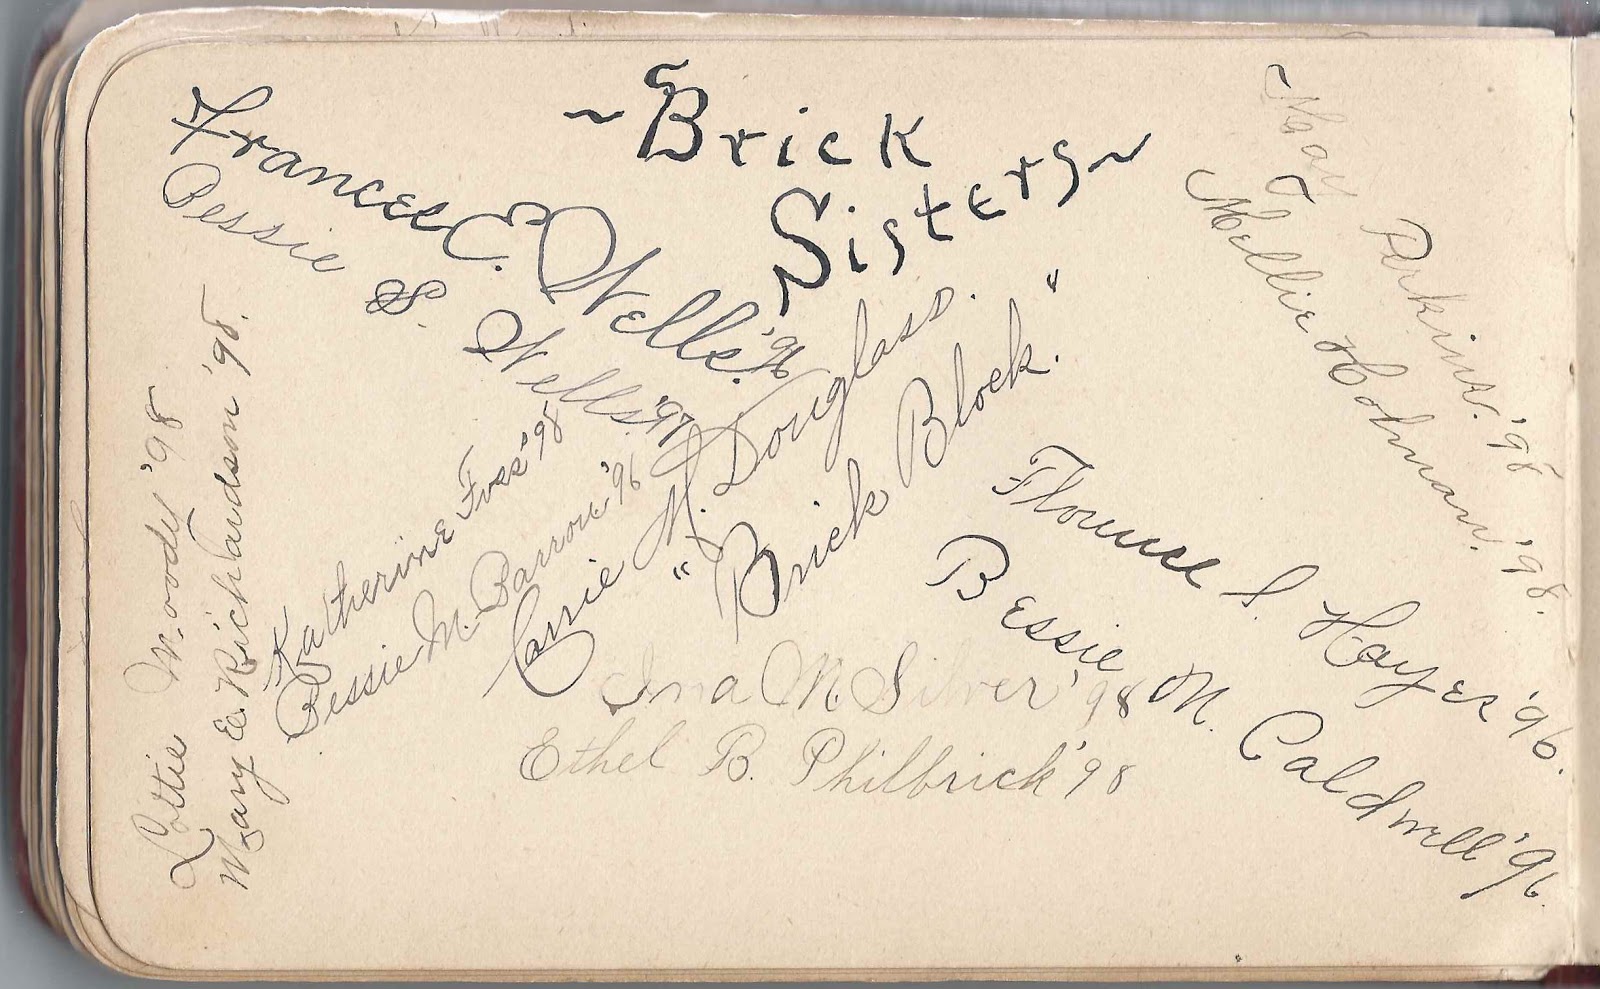 ~ Brick
Sisters ~
Frances E. Wells. '96
Bessie S. Wells. '97
Lottie Moody '98
Mary E. Richardson '98.
Katherine Foss '98
Bessie M. Barrow '96
Carrie M. Douglass.
"Brick Block."
Ina M. Silver '98
Ethel B. Philbrick '98
May Perkins. '98
Nellie Holman. '98.
Florence S. Hayes '96.
Bessie M. Caldwell '96.